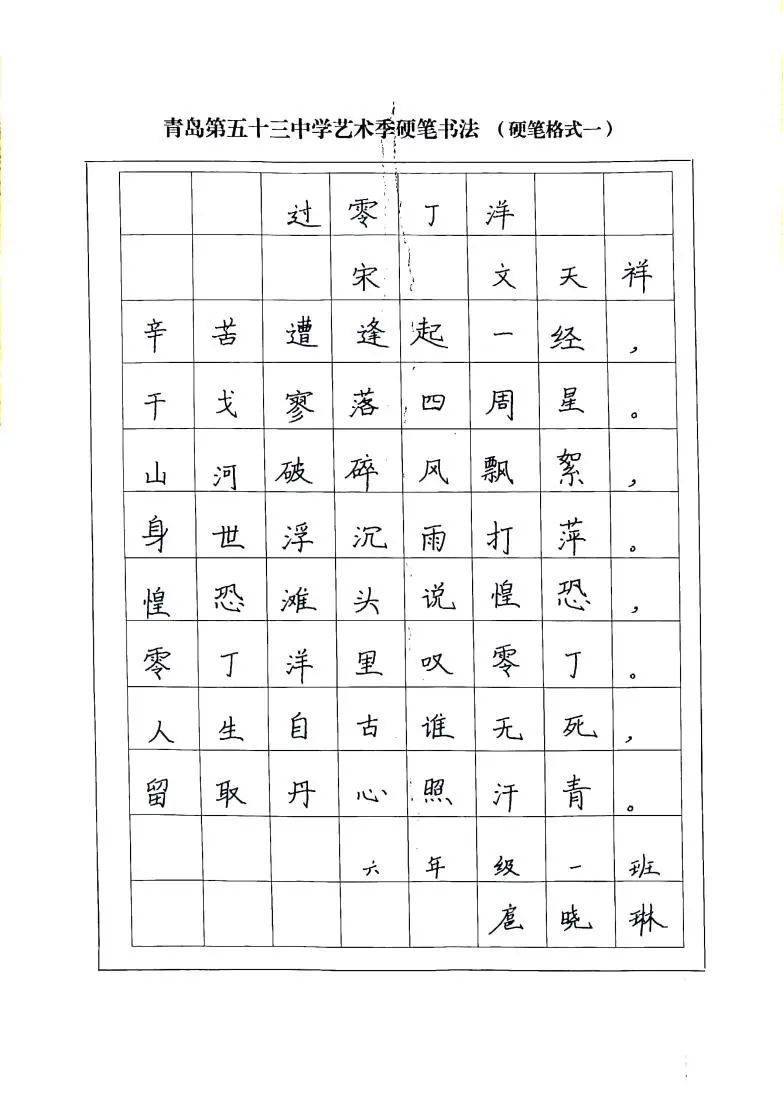 青岛第五十三中学艺术季硬笔书法（硬笔格式一）
过零丁洋
宋 文天祥
辛苦遭逢起一经，
干戈寥落四周星。
山河破碎风飘絮，
身世浮沉雨打萍。
惶恐滩头说惶恐，
零丁洋里叹零丁。
人生自古谁无死，
留取丹心照汗青。
六年级一班
扈晓琳